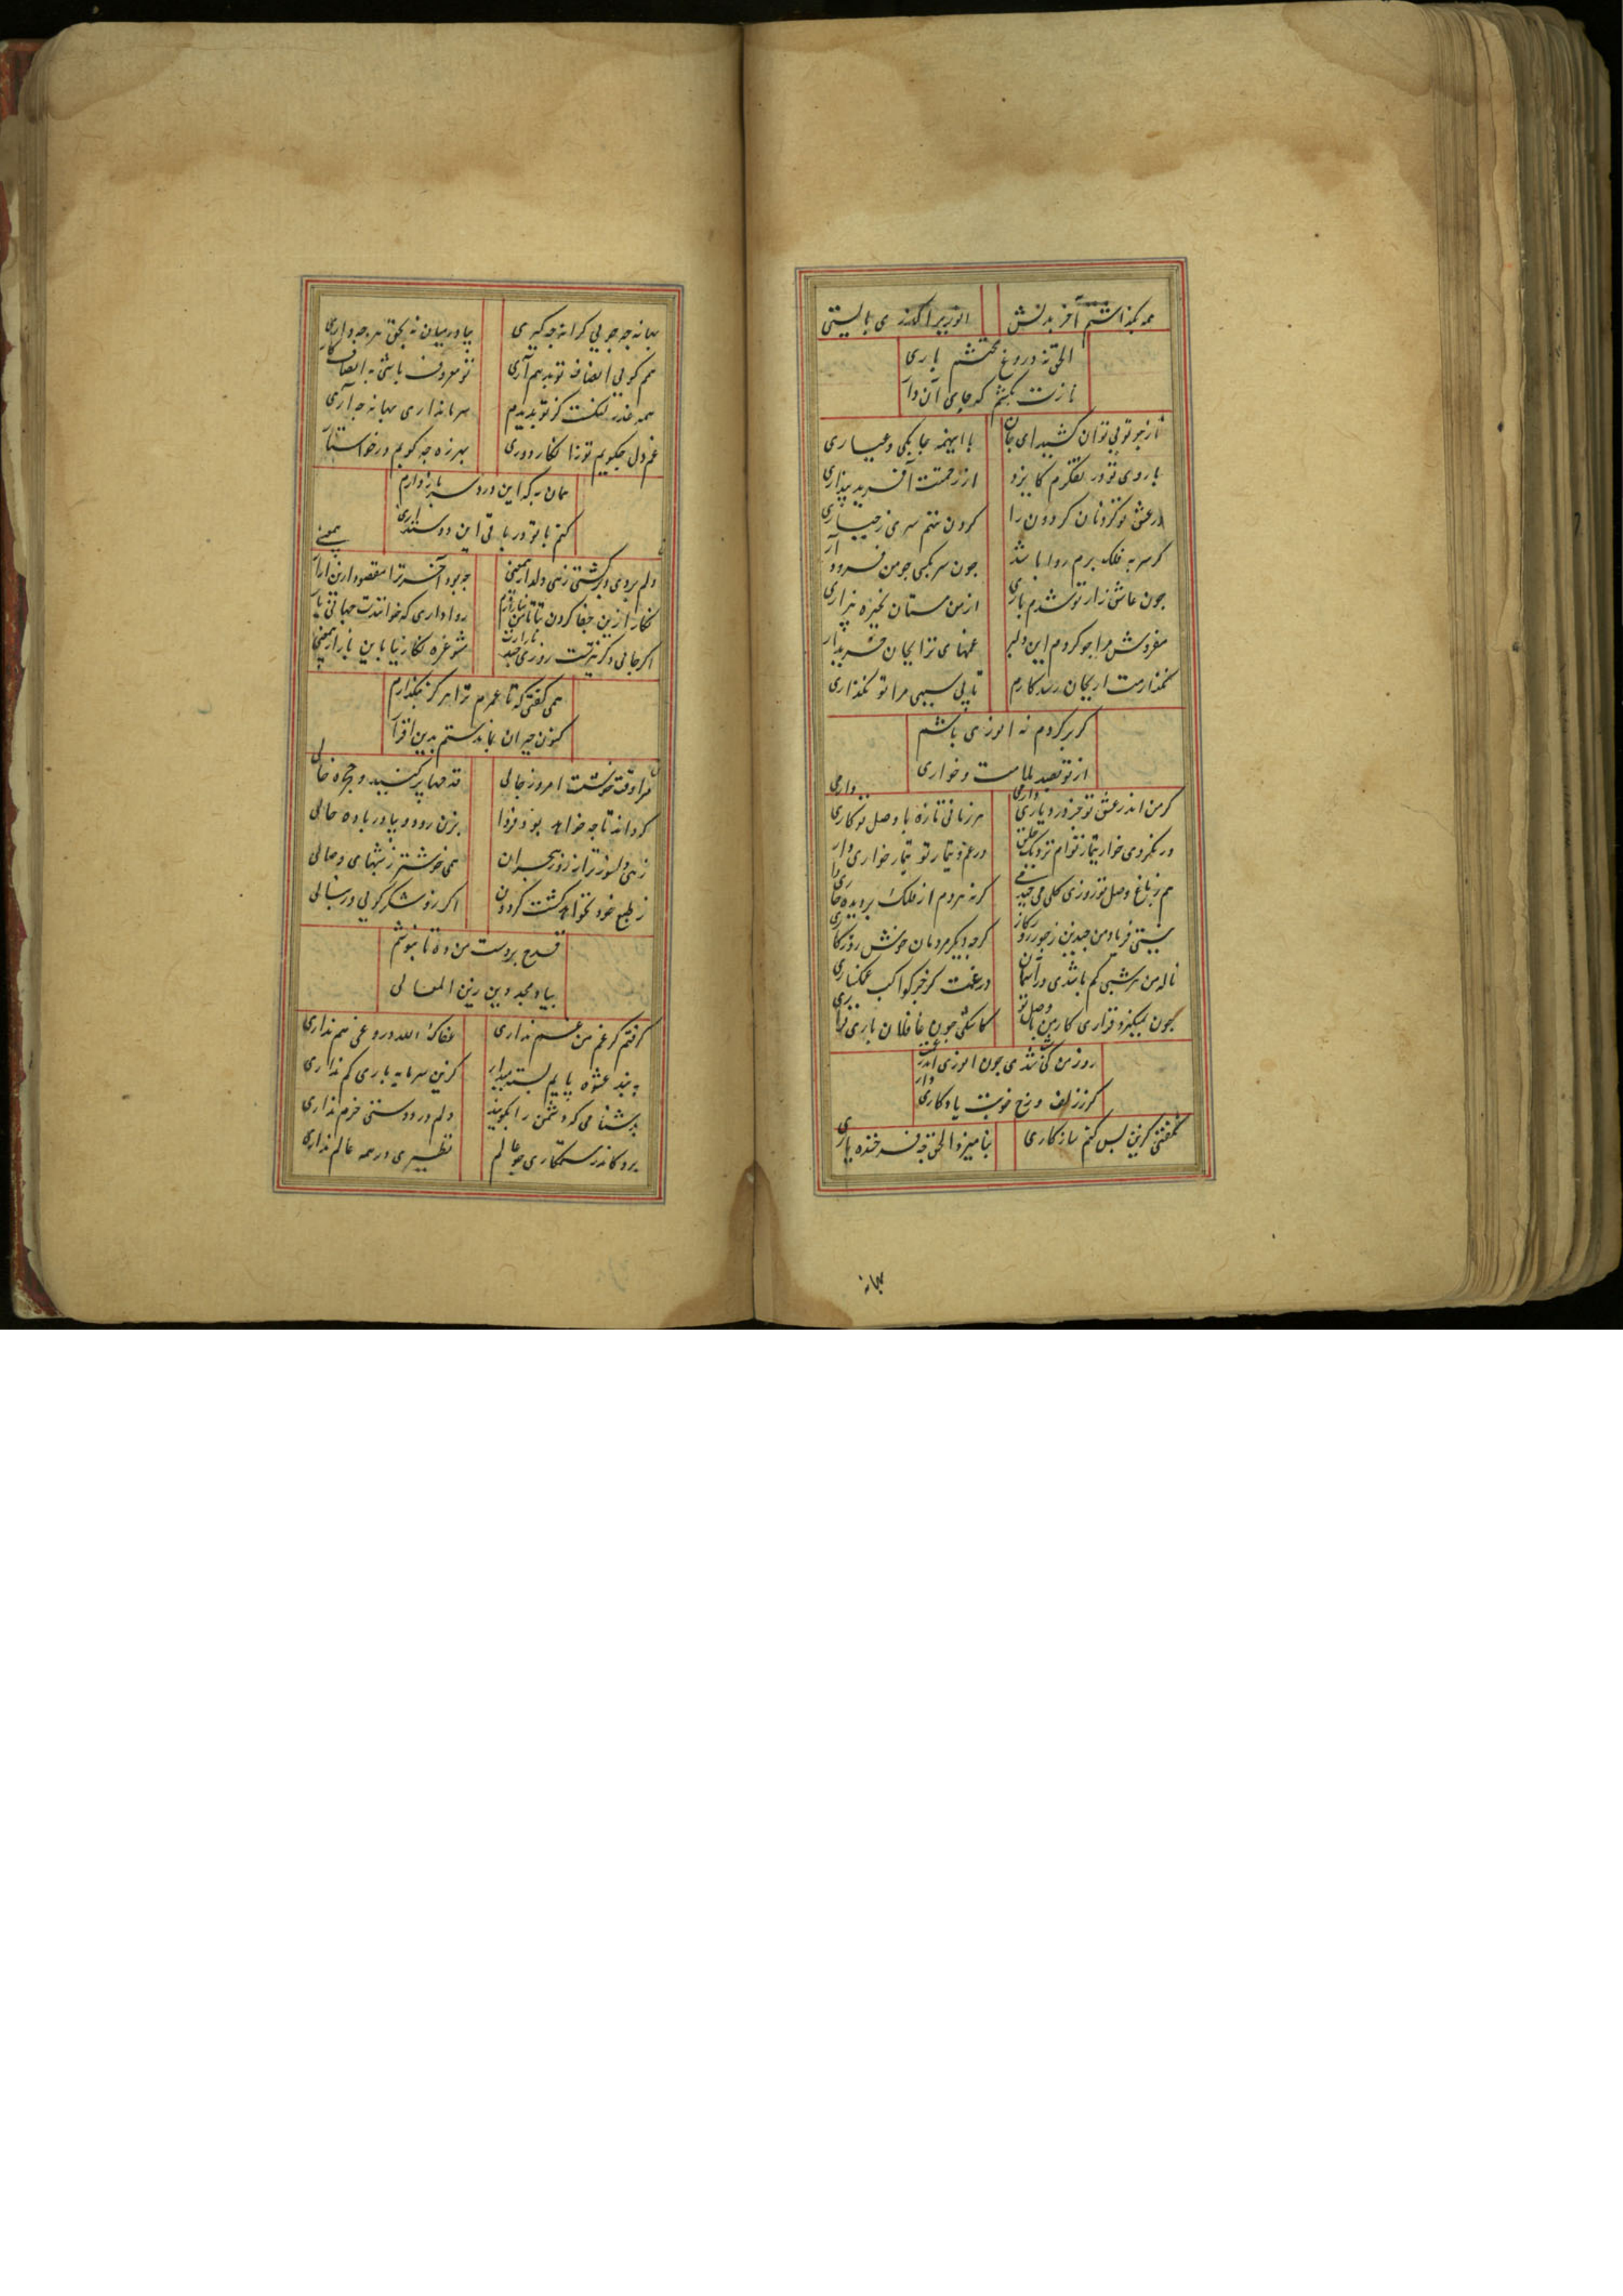 همه بگذاشتم آخر بدلش
انوری را گذری بایستی
الحق نه دروغ محتشم یاری
نازت بکشم که جای آن داری
از چو تویی توان کشید ای جان
با اینهمه چابکی و عیاری
با روی تو در تفکرم کایزد
از رحمتت آفرید پنداری
در عشق تو گردنان گردون را
گردن ننهم سری ز جباری
گر سر به فلک برم روا باشد
چون سر بکمی چو من فرود آری
چون عاشق زار تو شدم باری
از من مستان بخیره بیزاری
مفروش مرا چو کردم ای دلبر
غمهای ترا بجان خریداری
نگذارمت ار بجان رسد کارم
تا بی سببی مرا تو نگذاری
گر برگردم نه انوری باشم
از تو بصد ملامت و خواری
گر من اندر عشق تو جز درد یاری دارمی
هر زمانی تازه با وصل تو کاری دارمی
در غم و تیمار تو تیمار خواری دارمی
هم ز باغ وصل تو روزی گلی می‌چیدمی
گر نه هر دم از فلک بر دیده خاری
نیستی فریاد من چندین ز جور روزگار
گر چو دیگر مردمان خوش روزگاری
ناله من هر شبی کم باشدی در آسمان
در غمت گر جز کواکب غمگساری
چون نمیگیرد قراری کار من با وصل تو
کاشکی چون غافلان باری قراری
روز من کی شدی چون انوری اندر غمت
گر ز زلف و رخ خوبت یادگاری دار
نگفتی کزین پس کنم سازگاری
بنامیزد الحق چه فرخنده یاری
بهانه
بهانه چه جویی کرانه چه گیری
بیا در میان نه بحق هر چه داری
هم گویی انصاف تو بدهم آری
تو معروف باشی به انصاف کاری
همه عذر لنگست کز تو بدیدم
سر ما نداری بهانه چه آری
غم دل چگویم تو زان فکار دوری
بهرزه چه گویم در خواستاری
همان به که این درد سر باز دارم
کنم با تو در باقی این دوستداری
همی
دلم بردی و برگشتی زهی دلدار بی‌معنی
چه بود آخر ترا مقصود ازین آزار
نگارا زین جفا کردن
روا داری که خوانندت جهانی یار
اگر جانی و گر نبینمت روزی چند
مشو غره نگارینا باین بازار بی‌معنی
همی گفتی که تا عمرم ترا هرگز نگذارم
کنون حیران بماندستم بدین اقرار
مرا وقت خوشست امروز حالی
قدحها پر کنید و حجره خالی
که داند تا چه خواهد بود فردا
بزن رود و بیاور باده حالی
زهی دلسوزتر از روز هجران
همی خوشتر ز شبهای وصالی
ز طبع خود نخواهد گشت گردون
اگر زو شکر گویی ور بنالی
قدح بر دست من نه تا بنوشم
بیاد مجد دین زین المعالی
گرفتم کز غم من غم نداری
عفاک الله دروغی هم نداری
به بند عشوه پایم بسته میدار
کزین سرمایه باری کم نداری
به دشنامی که دشمن را بگویند
دلم در دوستی خرم نداری
برو کاندر ستمکاری چو عالم
نظیری در همه عالم نداری